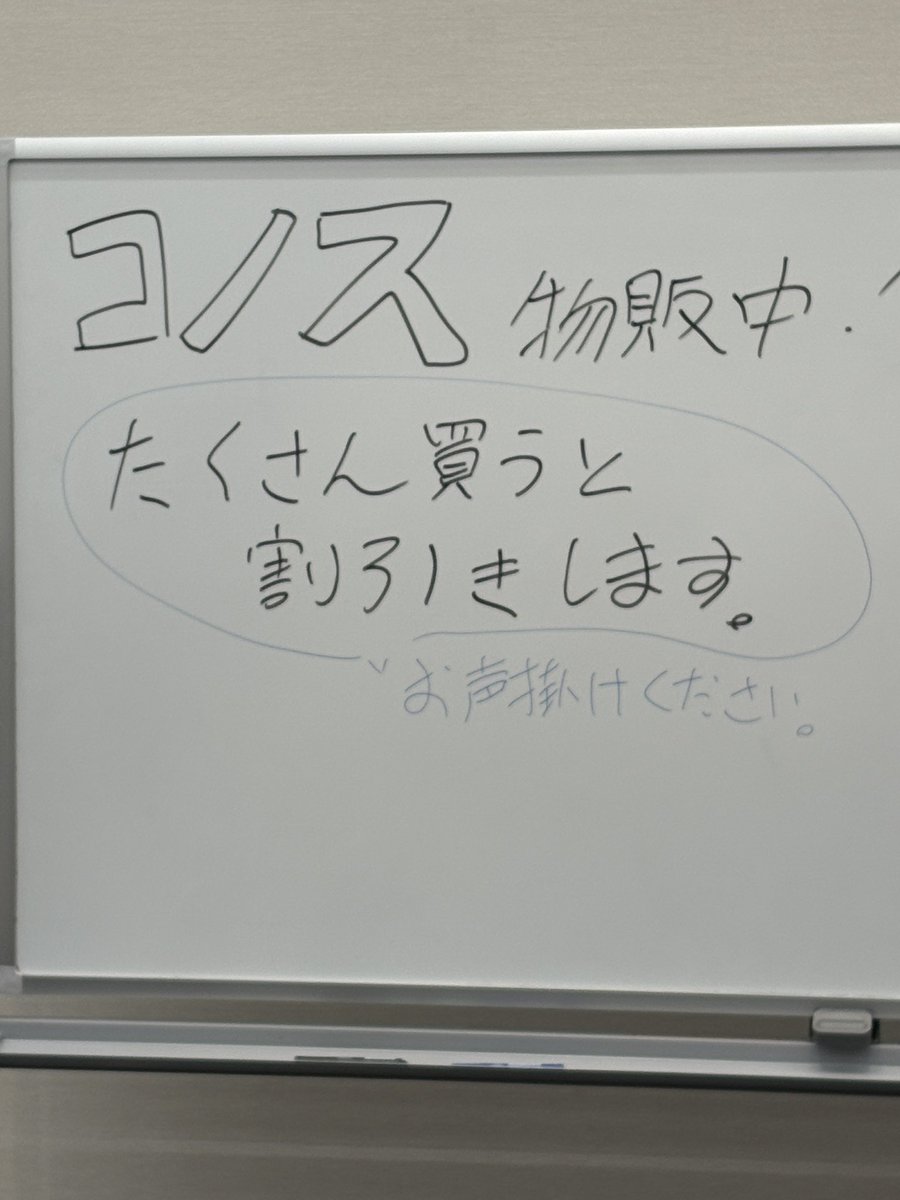 コノス 物販中.
たくさん買うと
割引きします。
お声掛けください。